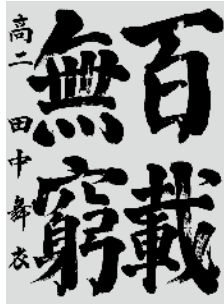 百載
無窮
高二 田中舞衣